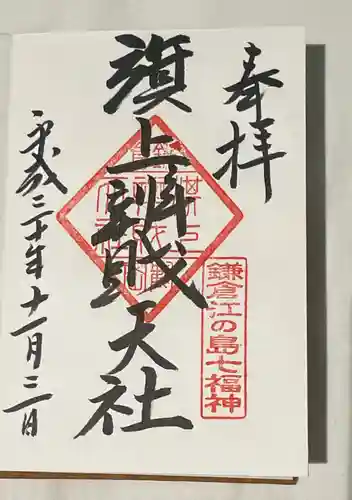 奉拝
旗上辨財天社
鎌倉江の島七福神
平成三十年十一月三日